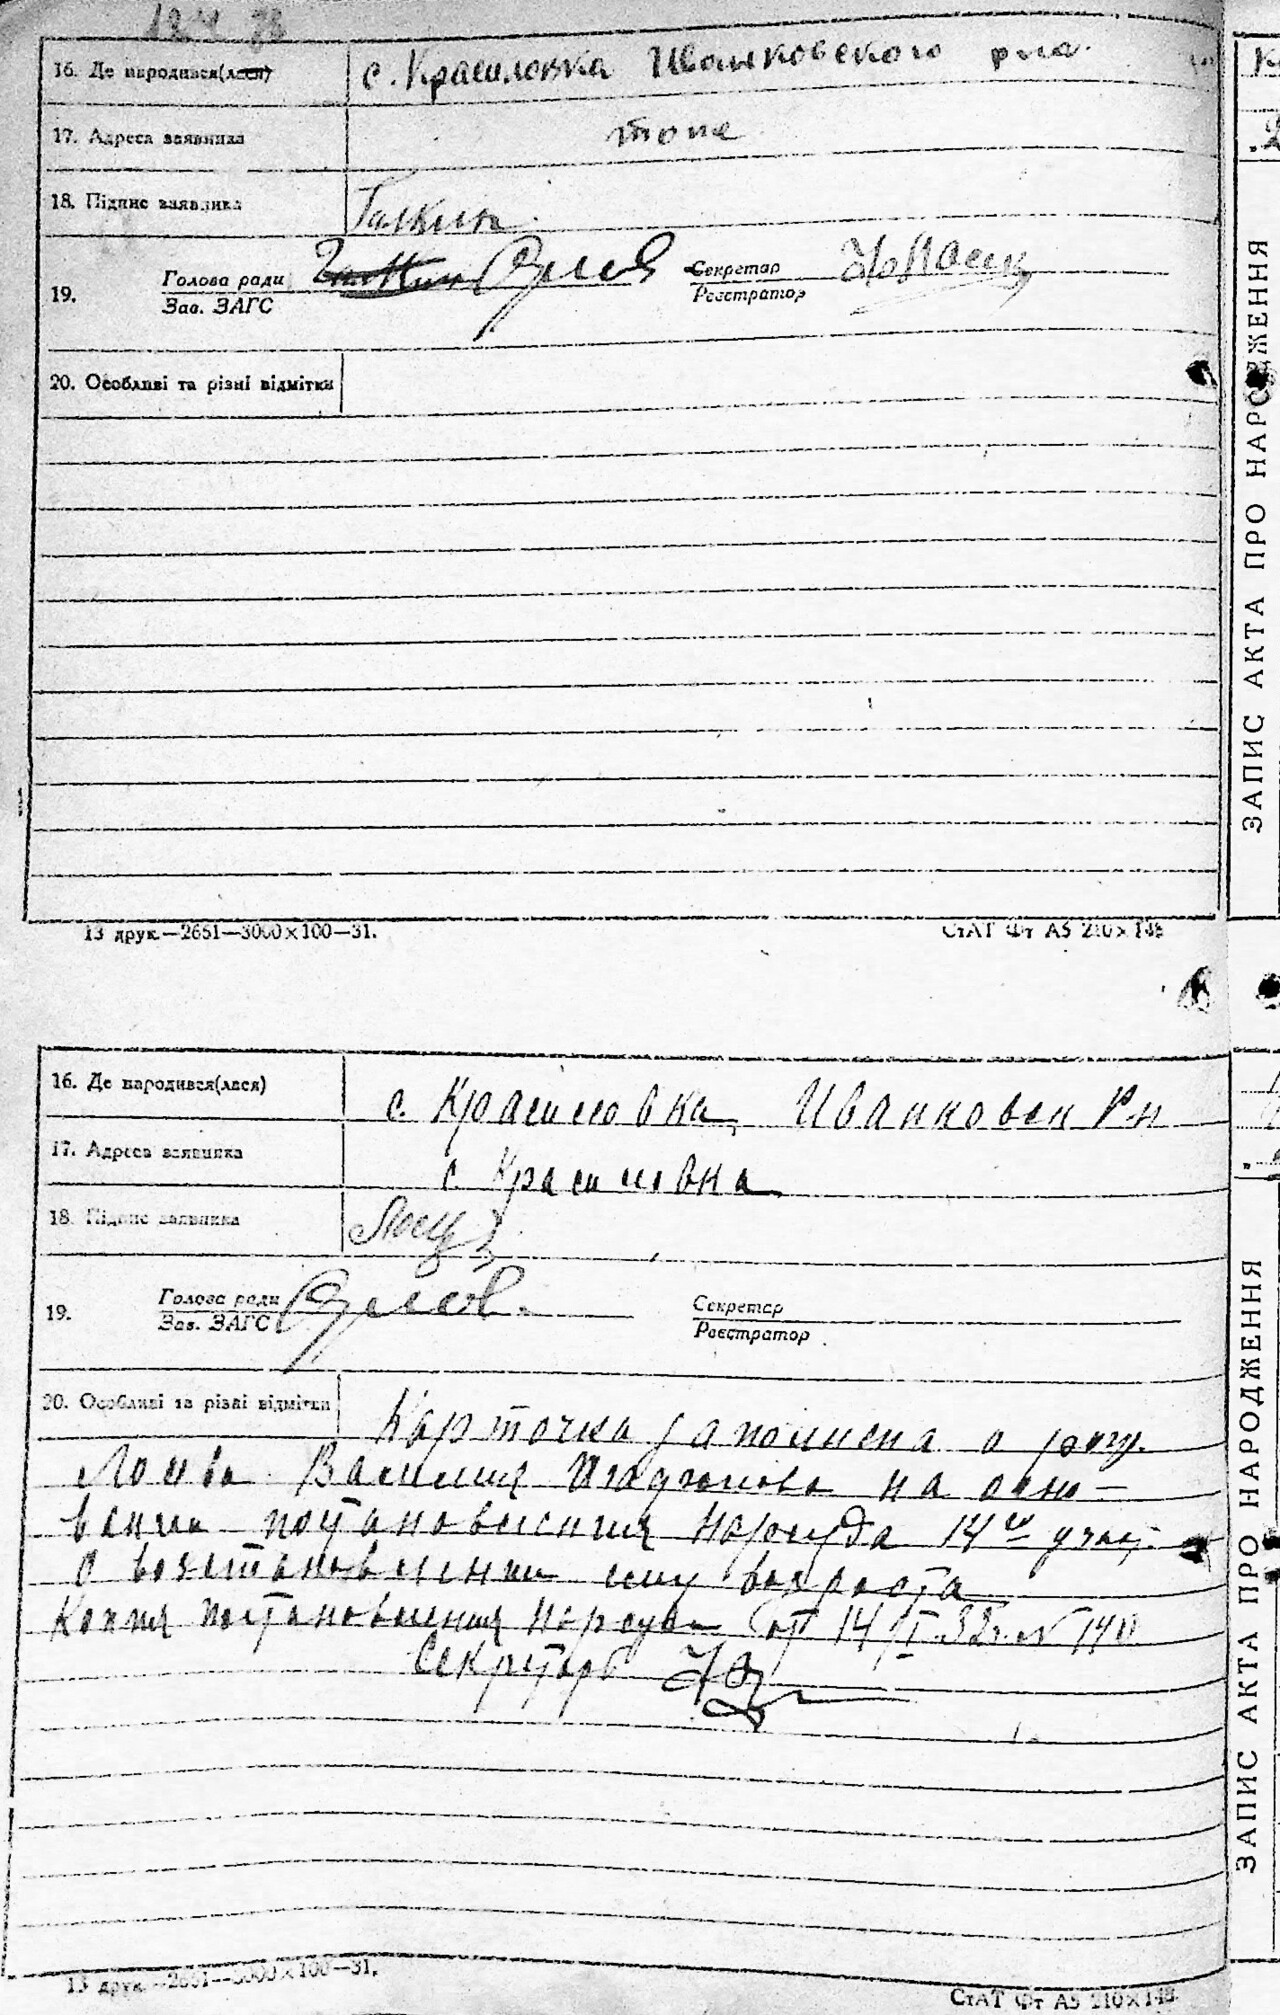 16. Де народився(лася) с. Красиловка Иванковского р-на
17. Адреса заявника тоже
18. Підпис заявника Галкин
19. Голова ради
Зав. ЗАГС
Секретар
Реєстратор
20. Особливі та різні відмітки
13 друк.—2651—3000×100—31.
СтАТ Фт А5 210×148
16. Де народився(лася) с. Красиловка, Иванковск Рн
17. Адреса заявника с. Красиловка
18. Підпис заявника
19. Голова ради
Зав. ЗАГС
Секретар
Реєстратор
20. Особливі та різні відмітки Карточка заполнена о рожд.
Василия на осно-
вании постановления Нарсуда 14го участ.
о возстановлении ему возраста
Копия постановления Нарсуда от 14/I 32г. N 140
Секретарь
13 друк.—2651—3000×100—31.
СтАТ Фт А5 210×148
ЗАПИС АКТА ПРО НАРОДЖЕННЯ
ЗАПИС АКТА ПРО НАРОДЖЕННЯ